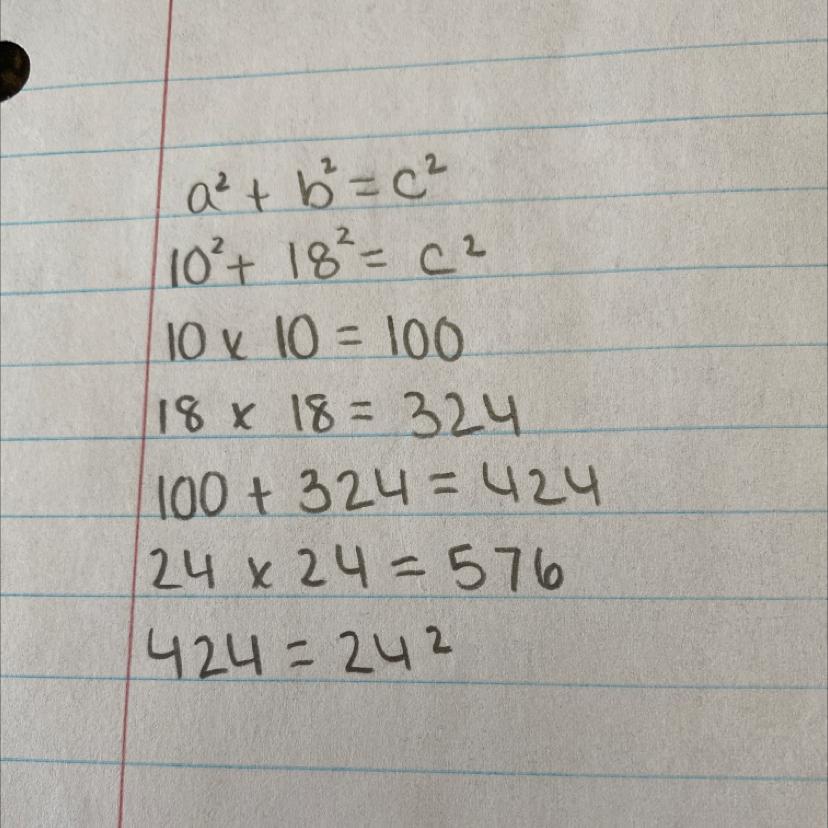 a² + b² = c²
10² + 18² = c²
10 x 10 = 100
18 x 18 = 324
100 + 324 = 424
24 x 24 = 576
424 = 24²